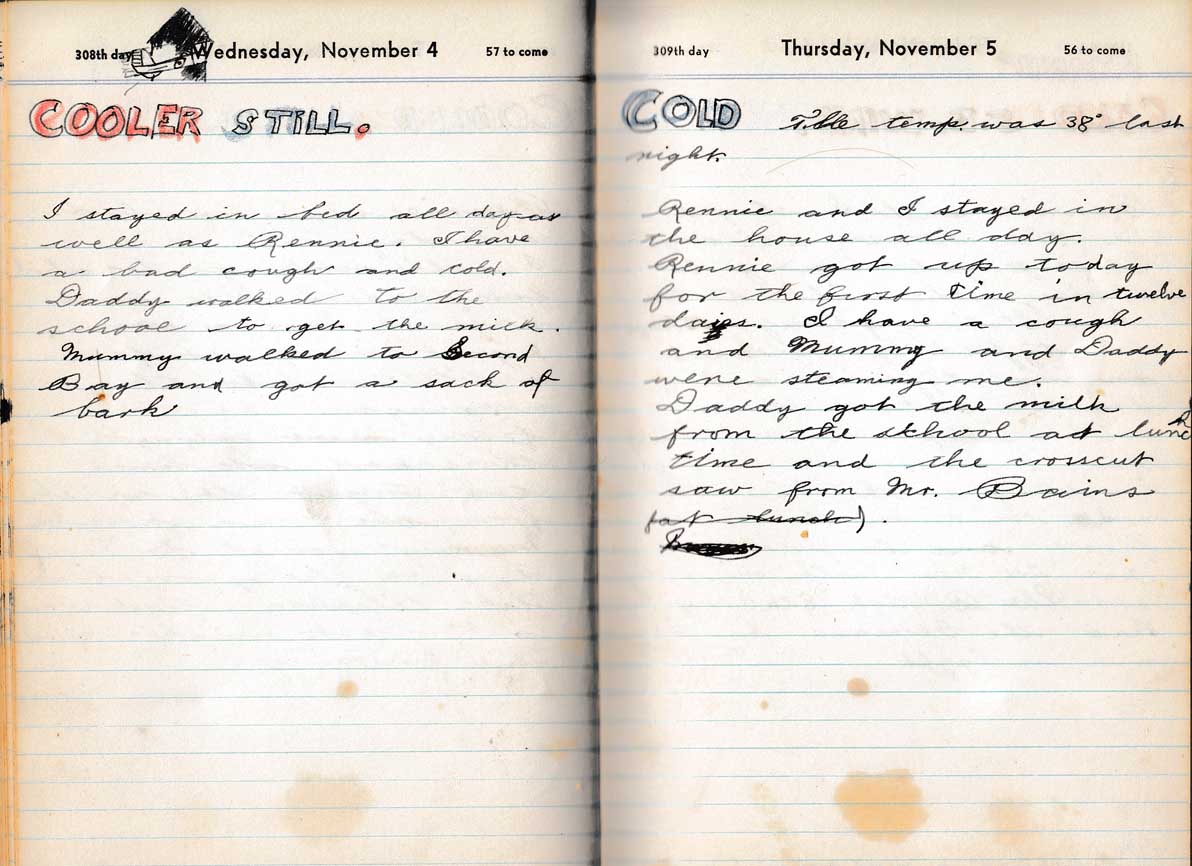 308th day Wednesday, November 4 57 to come
COOLER STILL.
I stayed in bed all day as
well as Rennie. I have
a bad cough and cold.
Daddy walked to the
school to get the milk.
Mummy walked to Second
Bay and got a sack of
bark
309th day Thursday, November 5 56 to come
COLD The temp. was 38° last
night.
Rennie and I stayed in
the house all day.
Rennie got up today
for the first time in twelve
days. I have a cough
and Mummy and Daddy
were steaming me.
Daddy got the milk
from the school at lunch
time and the crosscut
saw from Mr. Bains
(at lunch).